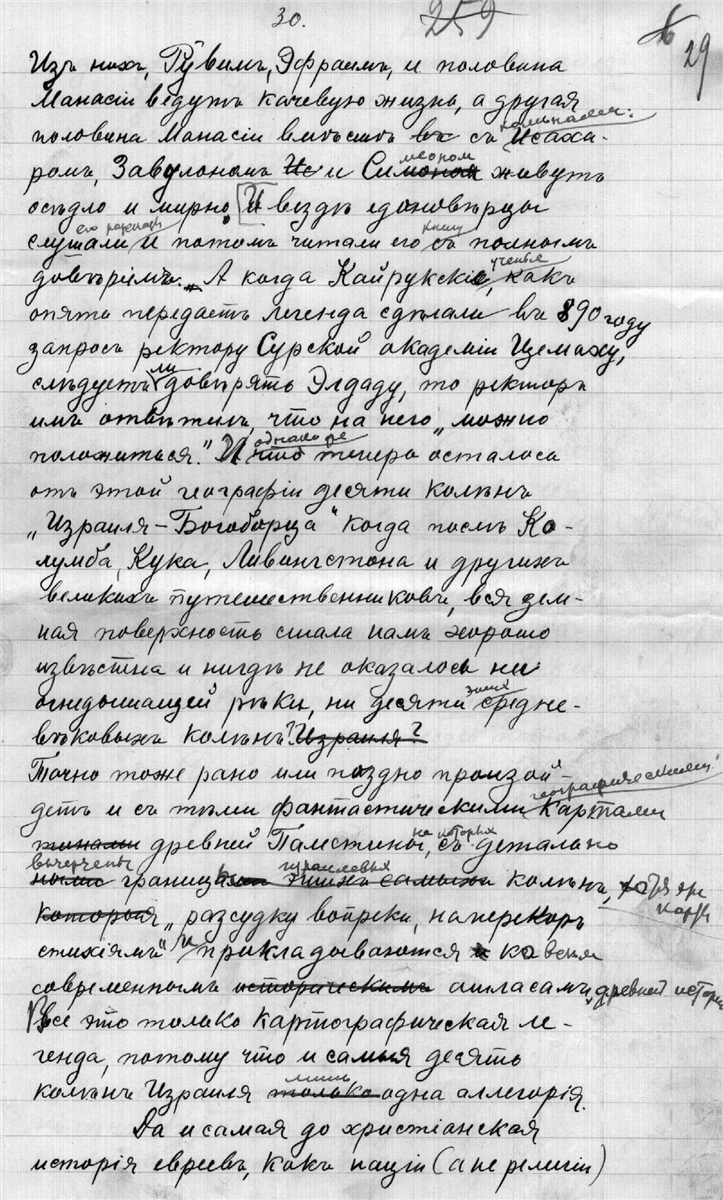 30.
259
29
Изъ нихъ, Рувимъ, Эфраимъ, и половина
Манасіи ведутъ качевую жизнь, а другая
половина Манасіи вмѣстѣ въ съ Исаха-
ромъ, Завулономъ Ис и Симеономъ живутъ
осѣдло и мирно. И вездѣ единовѣрцы
слушали его разсказы и потомъ читали его книгу съ полнымъ
довѣріемъ. А когда Кайрукскіе ученые, какъ
опять передаетъ легенда сдѣлали въ 890 году
запросъ ректору Сурской академіи Цемаху,
слѣдуетъ ли довѣрять Элдаду, то ректоръ
имъ отвѣтилъ, что на него „можно
положиться." И что однако же теперь осталось
отъ этой географіи десяти колѣнъ
„Израиля-Богоборца" когда послѣ Ко-
лумба, Кука, Ливингстона и другихъ
великихъ путешественниковъ, вся зем-
ная поверхность стала намъ хорошо
извѣстна и нигдѣ не оказалось ни
огнедышащей рѣки, ни десяти этихъ средне-
вѣковыхъ колѣнъ? Израиля?
Точно тоже рано или поздно произой-
детъ и съ тѣми фантастическими географическими картами
древней Палестины, на которыхъ съ детально
вычерчены границы этихъ самыхъ израилевыхъ колѣнъ, хотя эти карты
которыя „разсудку вопреки, наперекоръ
стихіямъ" и прикладываются ко всѣмъ
современнымъ историческимъ атласамъ древней исторіи
Все это только картографическая ле-
генда, потому что и самыя десять
колѣнъ Израиля только лишь одна аллегорія.
Да и самая до христіанская
исторія евреевъ, какъ націи (а не религіи)